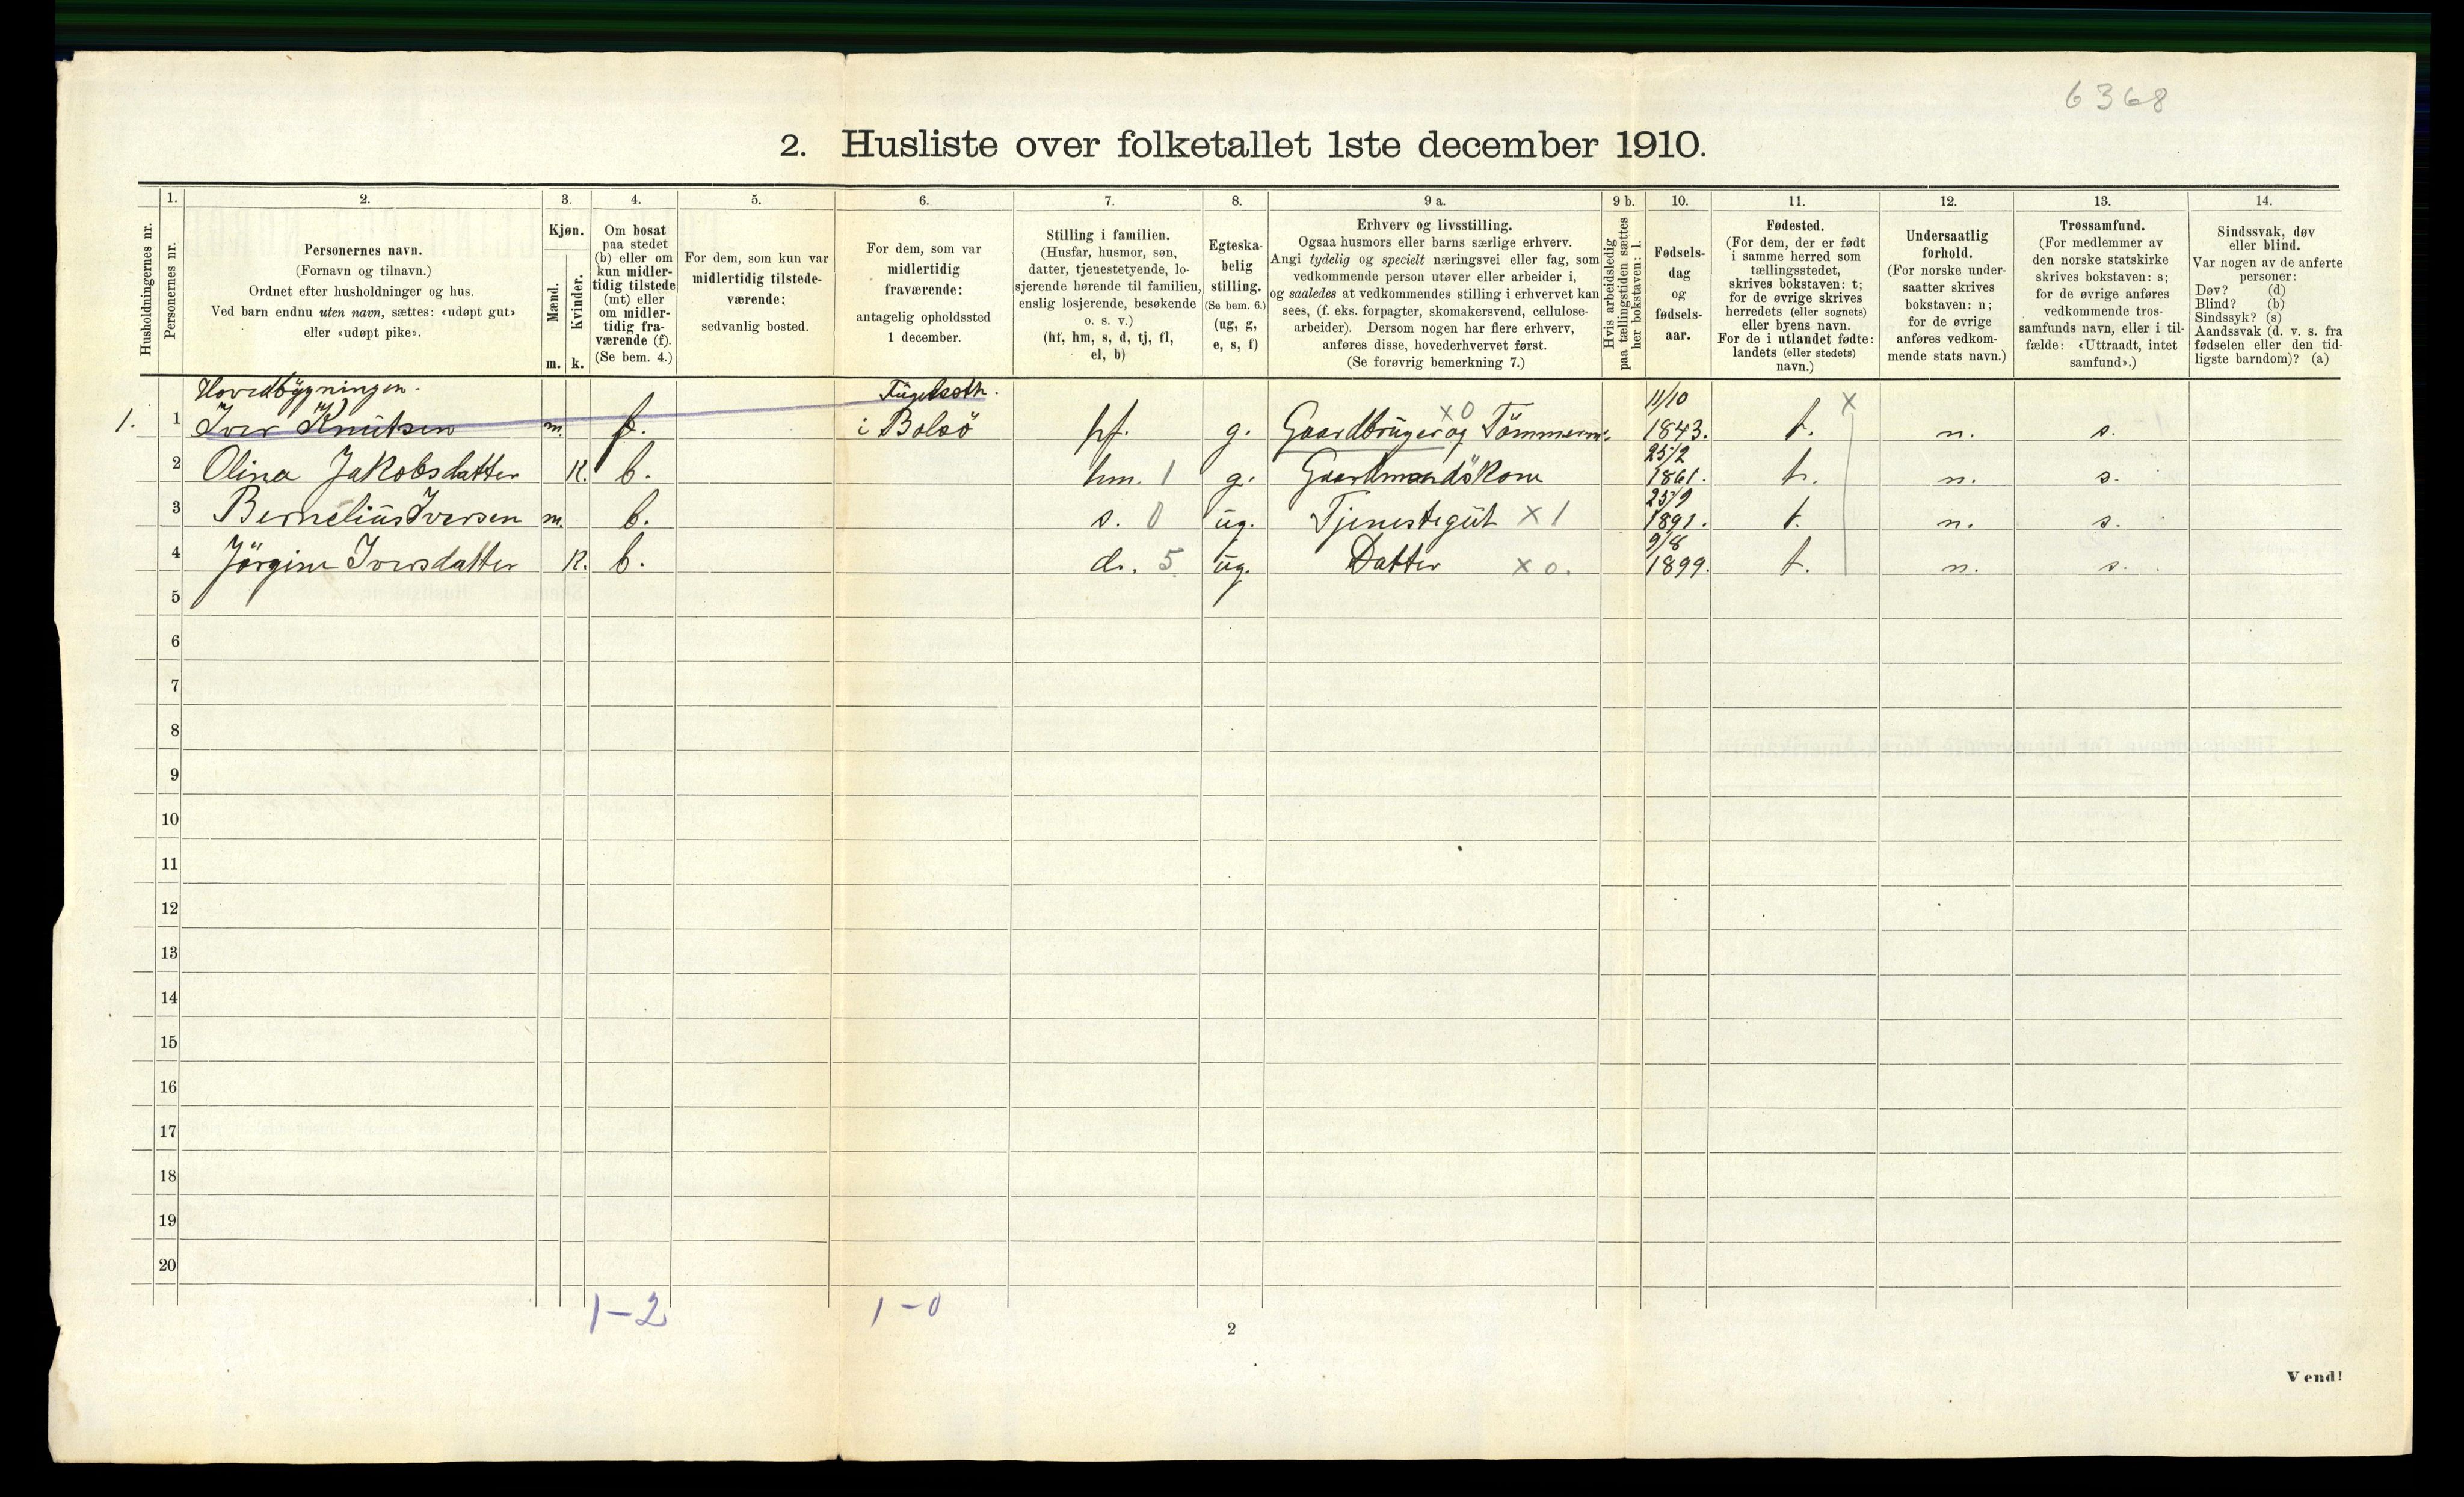 6368
2. Husliste over folketallet 1ste december 1910.
Husholdningernes nr.
1.
Personernes nr.
2.
Personernes navn.
(Fornavn og tilnavn.)
Ordnet efter husholdninger og hus.
Ved barn endnu uten navn, sættes: «udøpt gut»
eller «udøpt pike».
3.
Kjøn.
Mænd.
Kvinder.
m. k.
4.
Om bosat
paa stedet
(b) eller om
kun midler-
tidig tilstede
(mt) eller
om midler-
tidig fra-
værende (f).
(Se bem. 4.)
5.
For dem, som kun var
midlertidig tilstede-
værende:
sedvanlig bosted.
6.
For dem, som var
midlertidig
fraværende:
antagelig opholdssted
1 december.
7.
Stilling i familien.
(Husfar, husmor, søn,
datter, tjenestetyende, lo-
sjerende hørende til familien,
enslig losjerende, besøkende
o. s. v.)
(hf, hm, s, d, tj, fl,
el, b)
8.
Egteska-
belig
stilling.
(Se bem. 6.)
(ug, g,
e, s, f)
9 a.
Erhverv og livsstilling.
Ogsaa husmors eller barns særlige erhverv.
Angi tydelig og specielt næringsvei eller fag, som
vedkommende person utøver eller arbeider i,
og saaledes at vedkommendes stilling i erhvervet kan
sees, (f. eks. forpagter, skomakersvend, cellulose-
arbeider). Dersom nogen har flere erhverv,
anføres disse, hovederhvervet først.
(Se forøvrig bemerkning 7.)
9 b.
Hvis arbeidsledig
paa tællingstiden sættes
her bokstaven: l.
10.
Fødsels-
dag
og
fødsels-
aar.
11.
Fødested.
(For dem, der er født
i samme herred som
tællingsstedet,
skrives bokstaven: t;
for de øvrige skrives
herredets (eller sognets)
eller byens navn.
For de i utlandet fødte:
landets (eller stedets)
navn.)
12.
Undersaatlig
forhold.
(For norske under-
saatter skrives
bokstaven: n;
for de øvrige
anføres vedkom-
mende stats navn.)
13.
Trossamfund.
(For medlemmer av
den norske statskirke
skrives bokstaven: s;
for de øvrige anføres
vedkommende tros-
samfunds navn, eller i til-
fælde: «Uttraadt, intet
samfund».)
14.
Sindssvak, døv
eller blind.
Var nogen av de anførte
personer:
Døv? (d)
Blind? (b)
Sindssyk? (s)
Aandssvak (d. v. s. fra
fødselen eller den tid-
ligste barndom)? (a)
Hovedbygningen.
1. 1 Iver Knutsen m. f. i Bolsö hf. g. Gaardbruger og Tömmerm: x0 11/10 1843. t. x n. s.
2 Olina Jakobsdatter k. b. hm. 1 g. Gaardmandskone 25/2 1861. t. n. s.
3 Bernelius Iversen m. b. s. 0 ug. Tjenestegut x 1 25/9 1891. t. n. s.
4 Jörgine Iversdatter k. b. d. 5 ug. Datter x 0. 9/8 1899. t. n. s.
5
6
7
8
9
10
11
12
13
14
15
16
17
18
19
20
1-2
1-0
2
Vend!